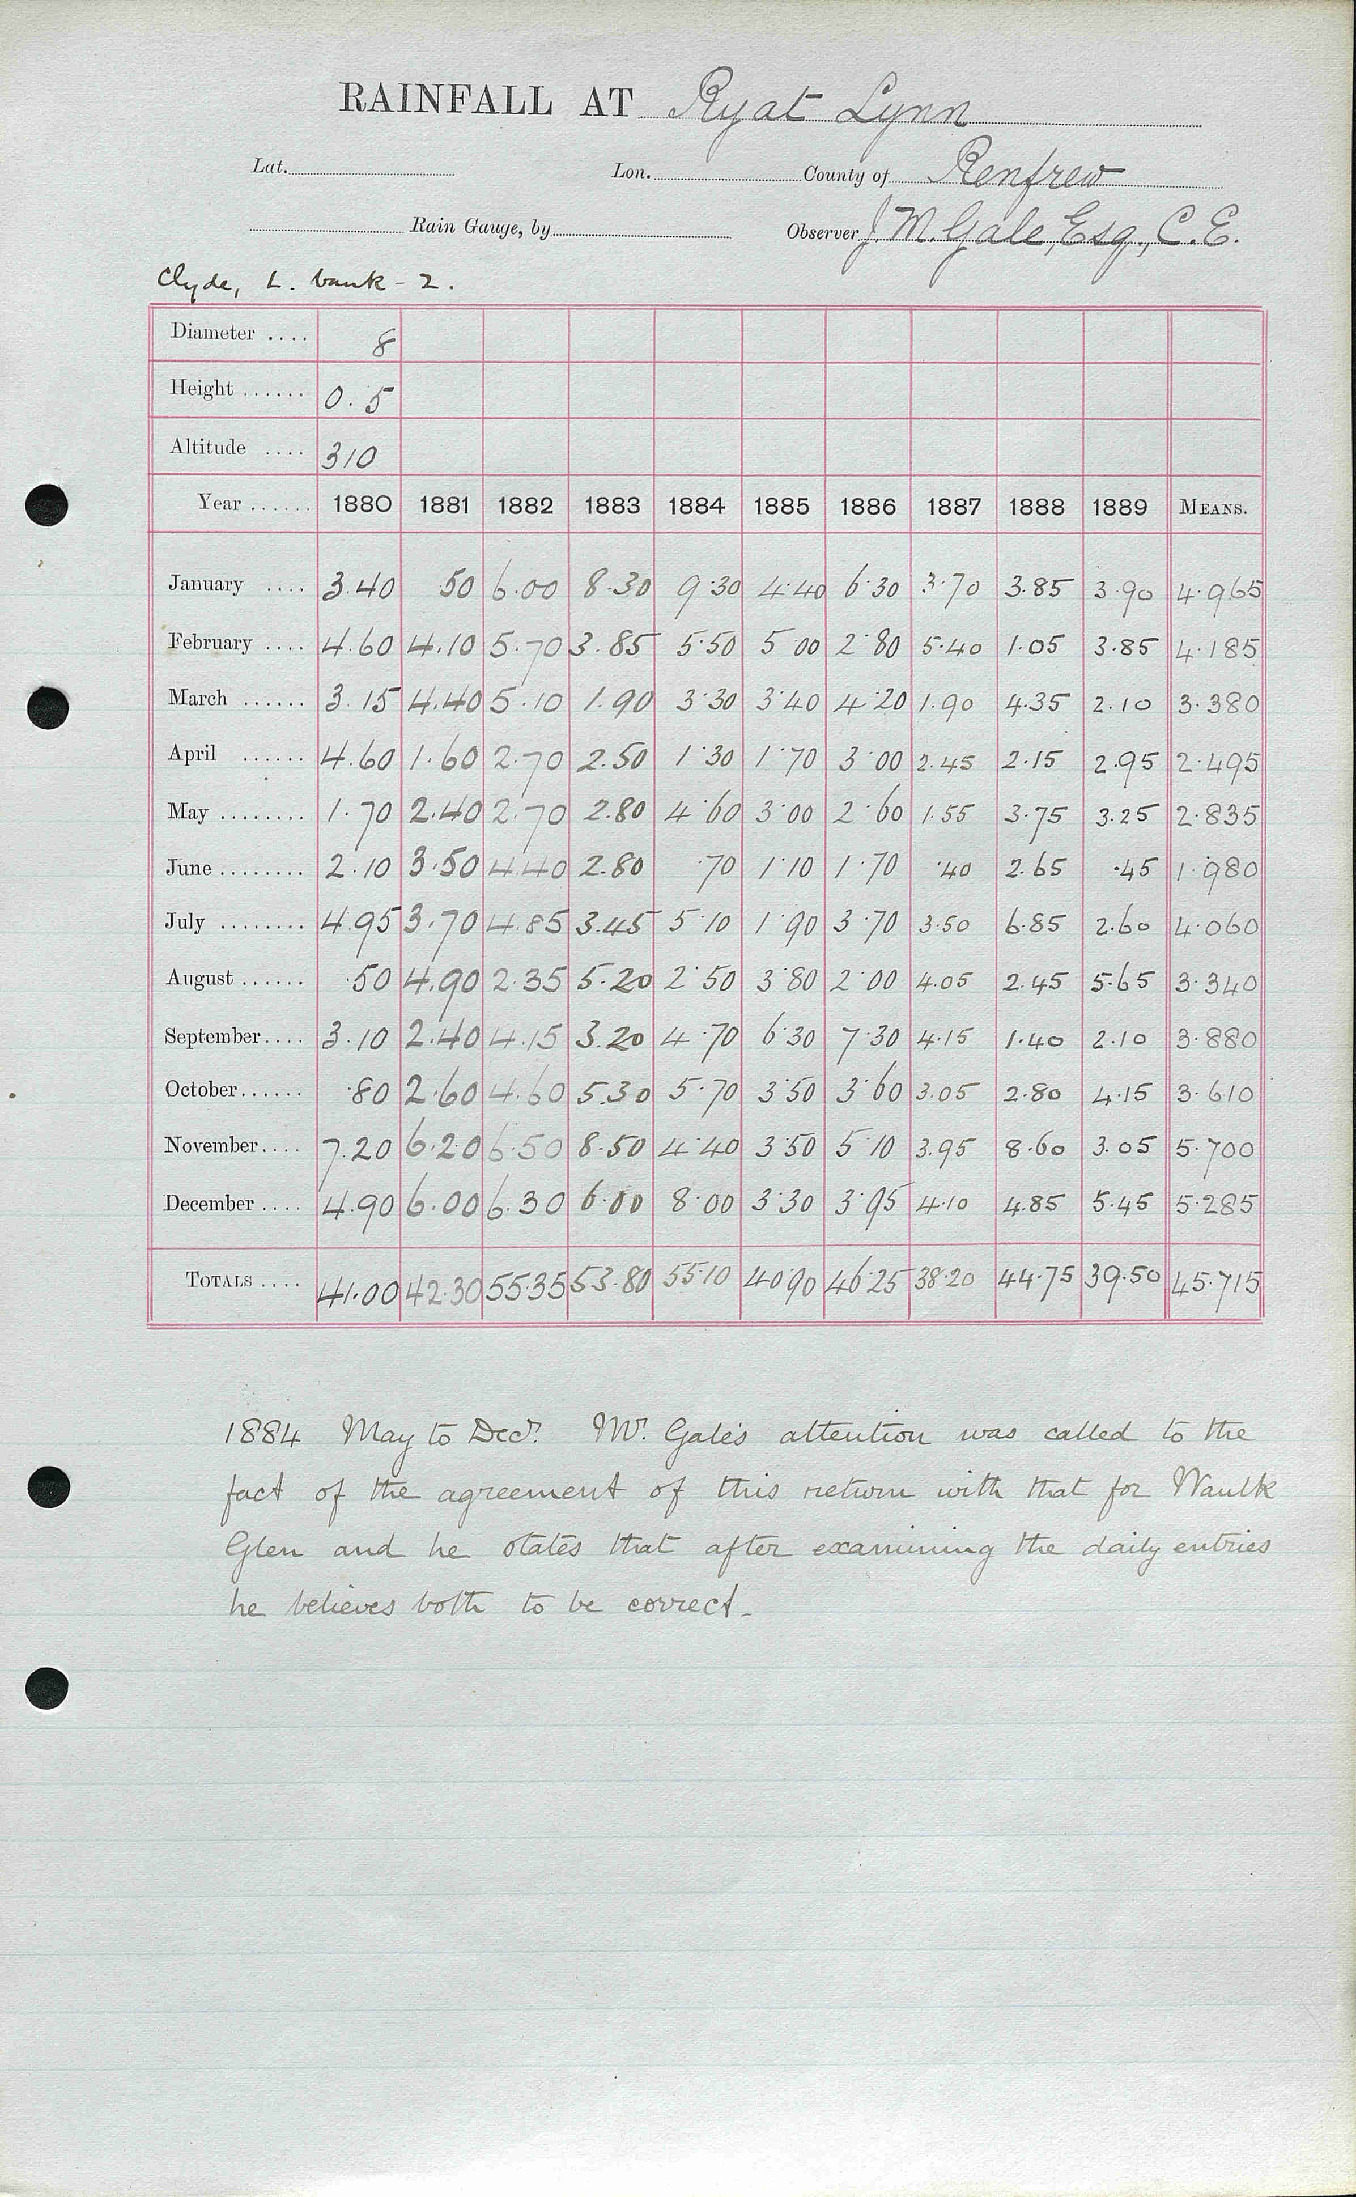 RAINFALL AT Ryat Lynn
Lat. Lon. County of Renfrew
Rain Gauge, by Observer J. M. Gale, Esq., C.E.
Clyde, L. bank - 2.
Diameter .... 8
Height ...... 0.5
Altitude .... 310
Year ...... 1880 1881 1882 1883 1884 1885 1886 1887 1888 1889 MEANS.
January .... 3.40 50 6.00 8.30 9.30 4.40 6.30 3.70 3.85 3.90 4.965
February .... 4.60 4.10 5.70 3.85 5.50 5 00 2.80 5.40 1.05 3.85 4.185
March ...... 3.15 4.40 5.10 1.90 3.30 3.40 4.20 1.90 4.35 2.10 3.380
April ...... 4.60 1.60 2.70 2.50 1.30 1.70 3.00 2.45 2.15 2.95 2.495
May ........ 1.70 2.40 2.70 2.80 4.60 3.00 2.60 1.55 3.75 3.25 2.835
June ........ 2.10 3.50 4.40 2.80 .70 1.10 1.70 .40 2.65 .45 1.980
July ........ 4.95 3.70 4.85 3.45 5.10 1.90 3.70 3.50 6.85 2.60 4.060
August ...... .50 4.90 2.35 5.20 2.50 3.80 2.00 4.05 2.45 5.65 3.340
September.... 3.10 2.40 4.15 3.20 4.70 6.30 7.30 4.15 1.40 2.10 3.880
October...... .80 2.60 4.60 5.30 5.70 3.50 3.60 3.05 2.80 4.15 3.610
November.... 7.20 6.20 6.50 8.50 4.40 3.50 5.10 3.95 8.60 3.05 5.700
December .... 4.90 6.00 6.30 6.00 8.00 3.30 3.95 4.10 4.85 5.45 5.285
TOTALS .... 41.00 42.30 55.35 53.80 55.10 40.90 46.25 38.20 44.75 39.50 45.715
1884 May to Decr. Mr. Gale's attention was called to the
fact of the agreement of this return with that for Waulk
Glen and he states that after examining the daily entries
he believes both to be correct.